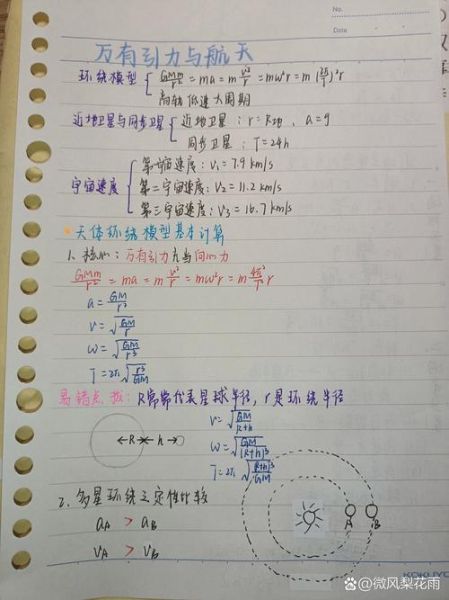 No.
Date
万有引力与航天
环绕模型 { GMm/r² = ma = m v²/r = mω²r = m(2π/T)²r
高轨低速大周期
近地卫星与同步卫星 { 近地卫星：r=R地，a=g
同步卫星：T=24h
宇宙速度 { 第一宇宙速度：V₁=7.9km/s
第二宇宙速度：V₂=11.2km/s
第三宇宙速度：V₃=16.7km/s
天体环绕模型基本计算
1、核心：万有引力充当向心力
GMm/r² = ma = m v²/r = mω²r = m 4π²/T² r
a = GM/r²
v = √(GM/r)
ω = √(GM/r³)
T = 2π√(r³/GM)
易错点拨：R常常代表星球半径，r是环绕半径
R h
V = √(GM/(R+h))
ω = √(GM/(R+h)³)
T = 2π√((R+h)³/GM)
2、多星环绕之定性比较
aA > aB
A B
VA > VB
KOKUYO
@微风梨花雨